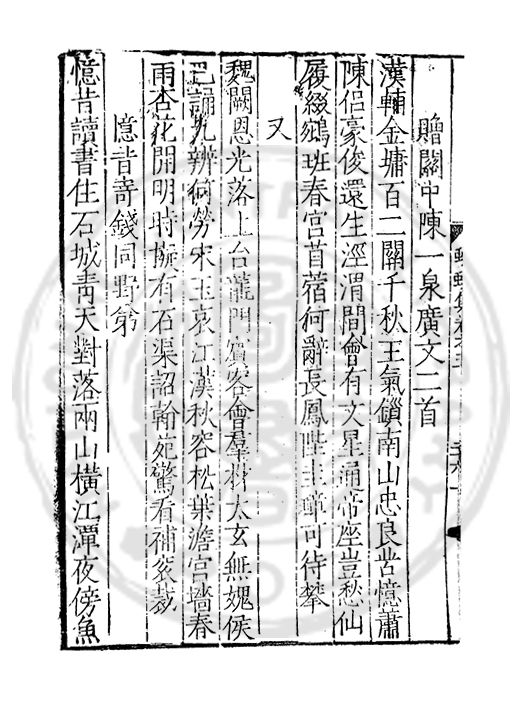 贈關中陳一泉廣文二首
漢輔金墉百二關千秋王氣鎖南山忠良憶蕭
陳侶豪俊還生涇渭間會有文星通帝座豈愁仙
履綴鵷班春宮苜蓿何辭長鳳陛圭璋可待攀
又
魏闕恩光落上台龍門賓客會羣材太玄無媿侯
芭誦九辨何勞宋玉哀江漢秋容松葉澹宮牆春
雨杏花開明時擬有石渠詔翰苑驚看補袞裁
憶昔寄錢同野第
憶昔讀書住石城青天對落兩山橫江潭夜傍魚